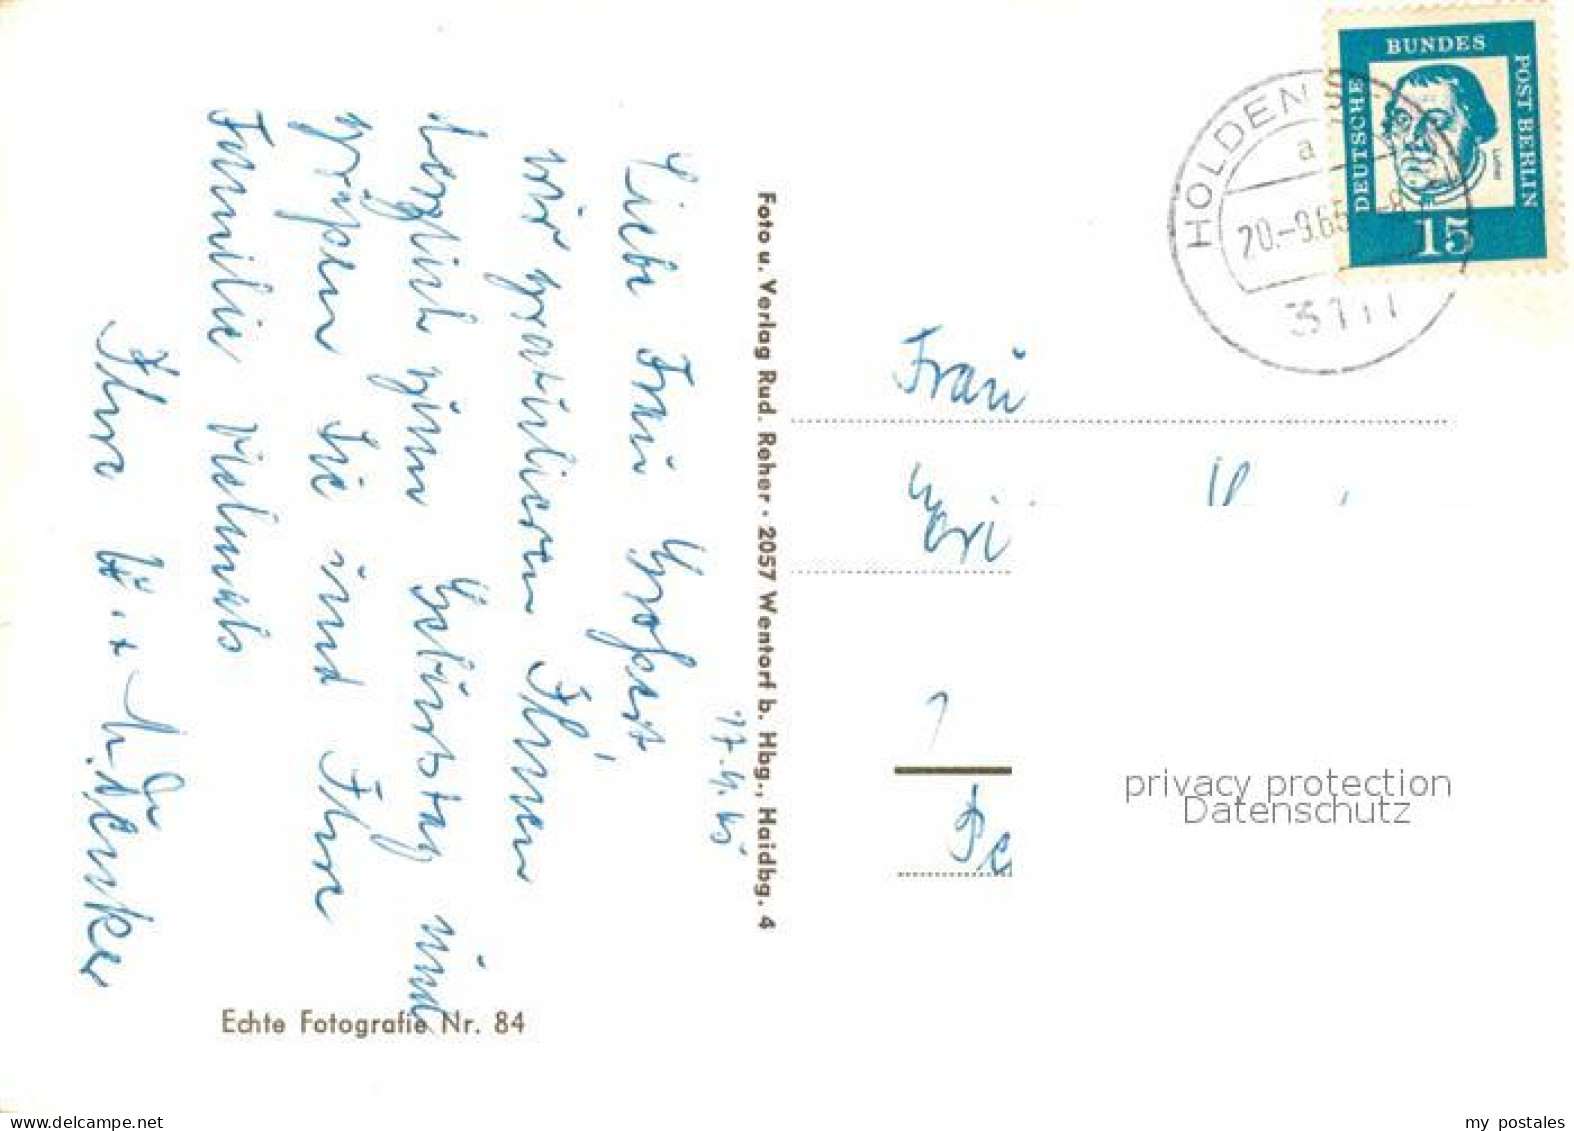 17.9.65
Liebe Frau Großert,
wir gratulieren Ihnen
herzlich zum Geburtstag und
grüßen Sie und Ihre
Familie vielmals
Ihre H. + M.
Foto u. Verlag Rud. Reher · 2057 Wentorf b. Hbg., Haidbg. 4
Echte Fotografie Nr. 84
DEUTSCHE BUNDES POST BERLIN
Luther
15
HOLDEN
a
20.-9.65 -8
3111
Frau
privacy protection
Datenschutz
my postales